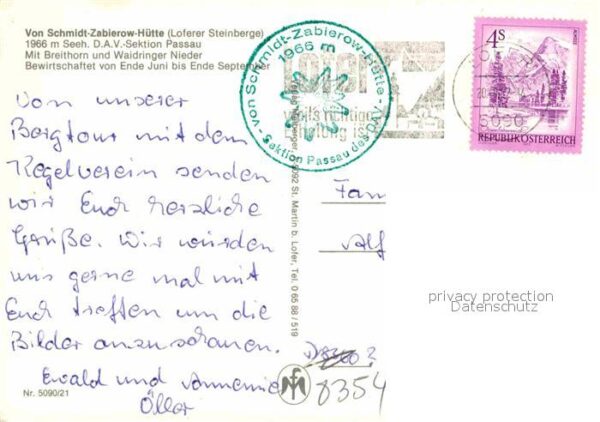 Von Schmidt-Zabierow-Hütte (Loferer Steinberge)
1966 m Seeh. D.A.V.-Sektion Passau
Mit Breithorn und Waidringer Nieder
Bewirtschaftet von Ende Juni bis Ende September
von Schmidt-Zabierow-Hütte
1966 m
Sektion Passau des DAV
Lofer
weil's richtige
Erholung ist
LOFER
5090
4S
REPUBLIK ÖSTERREICH
Von unserer
Bergtour mit dem
Kegelverein senden
wir Euch herzliche
Grüße. Wir würden
uns gerne mal mit
Euch treffen um die
Bilder anzuschauen.
Ewald und Annemie
Öller
Fam
Alf
5092 St. Martin b. Lofer, Tel. 0 65 88 / 519
privacy protection
Datenschutz
8354
Nr. 5090/21